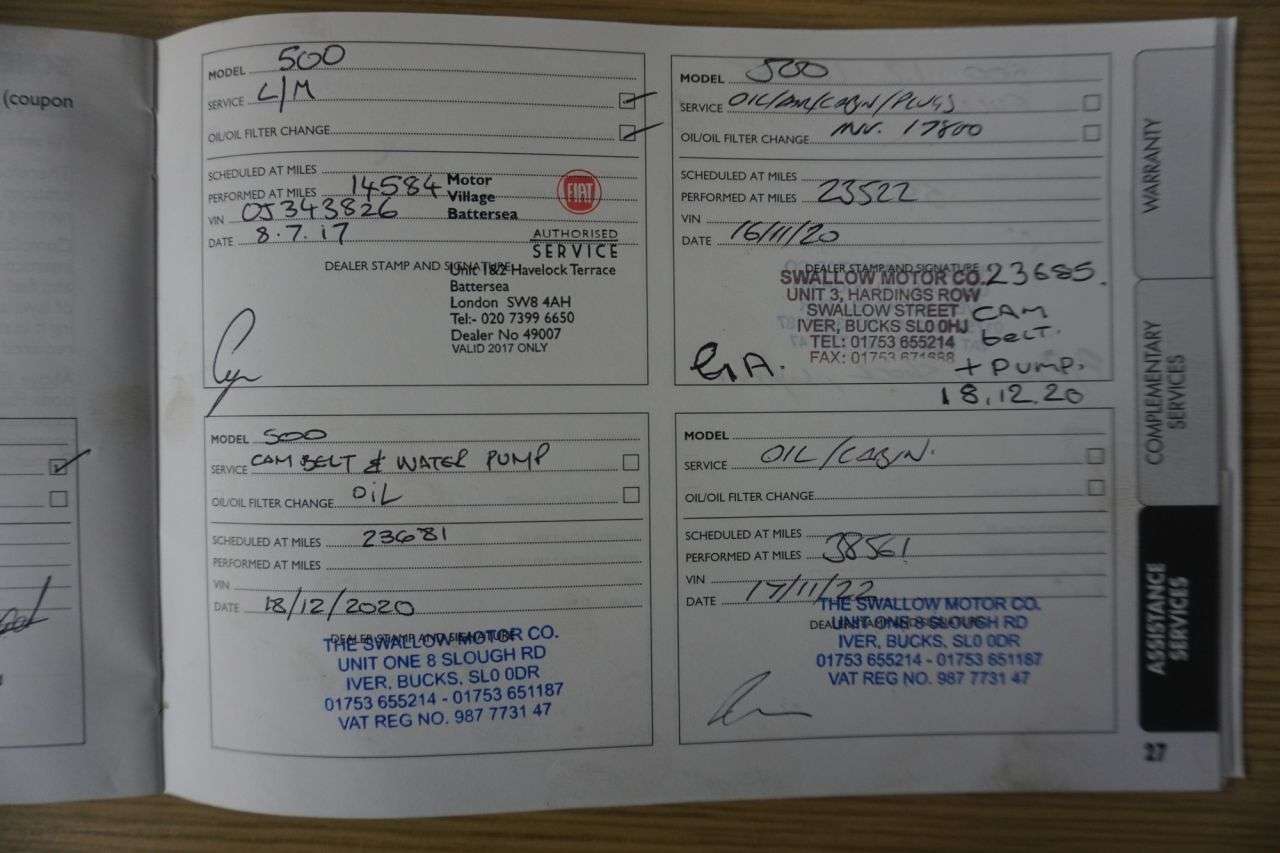 (coupon
MODEL 500
SERVICE L/M
OIL/OIL FILTER CHANGE
SCHEDULED AT MILES
PERFORMED AT MILES 14584
VIN OJ343826
DATE 8.7.17
Motor
Village
Battersea
FIAT
AUTHORISED
SERVICE
DEALER STAMP AND SIGNATURE
Unit 1&2 Havelock Terrace
Battersea
London SW8 4AH
Tel:- 020 7399 6650
Dealer No 49007
VALID 2017 ONLY
MODEL 500
SERVICE OIL/AIR/CABIN/PLUGS
OIL/OIL FILTER CHANGE INV. 17800
SCHEDULED AT MILES
PERFORMED AT MILES 23522
VIN
DATE 16/11/20
DEALER STAMP AND SIGNATURE
SWALLOW MOTOR CO. 23685.
UNIT 3, HARDINGS ROW
SWALLOW STREET CAM
IVER, BUCKS SL0 0HJ belt.
TEL: 01753 655214
FAX: 01753 671688
G.A. + PUMP.
18.12.20
MODEL 500
SERVICE CAM BELT & WATER PUMP
OIL/OIL FILTER CHANGE OIL
SCHEDULED AT MILES 23681
PERFORMED AT MILES
VIN
DATE 18/12/2020
DEALER STAMP AND SIGNATURE
THE SWALLOW MOTOR CO.
UNIT ONE 8 SLOUGH RD
IVER, BUCKS, SL0 0DR
01753 655214 - 01753 651187
VAT REG NO. 987 7731 47
MODEL
SERVICE OIL/CABIN.
OIL/OIL FILTER CHANGE
SCHEDULED AT MILES
PERFORMED AT MILES 38561
VIN
DATE 17/11/22
THE SWALLOW MOTOR CO.
DEALER STAMP AND SIGNATURE
UNIT ONE 8 SLOUGH RD
IVER, BUCKS, SL0 0DR
01753 655214 - 01753 651187
VAT REG NO. 987 7731 47
WARRANTY
COMPLEMENTARY
SERVICES
ASSISTANCE
SERVICES
27